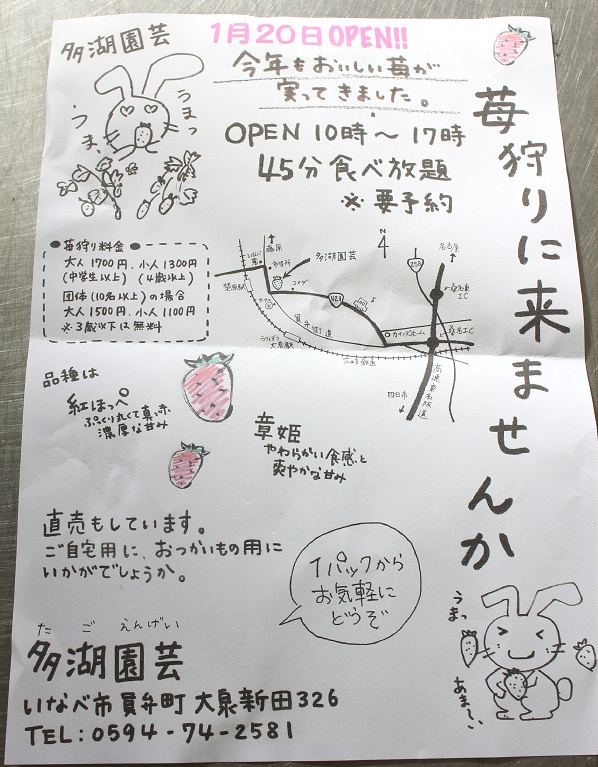 多湖園芸
1月20日OPEN!!
今年もおいしい苺が
実ってきました。
OPEN 10時～17時
45分食べ放題
※要予約
苺狩りに来ませんか
うまっ
うま、
●苺狩り料金●
大人1700円、小人1300円
(中学生以上) (4歳以上)
団体(10名以上)の場合
大人1500円、小人1100円
※3歳以下は無料
藤原
市役所
多湖園芸
コメダ
N
名古屋
258
桑名東
IC
421
員弁街道
カインズホーム
桑名IC
大泉駅
三岐鉄道
四日市
東名阪
高速道
品種は
紅ほっぺ
ぷっくり丸くて真っ赤
濃厚な甘み
章姫
やわらかい食感と
爽やかな甘み
直売もしています。
ご自宅用に、おつかいもの用に
いかがでしょうか。
1パックから
お気軽に
どうぞ
うまっ
あま～い
たごえんげい
多湖園芸
いなべ市員弁町大泉新田326
TEL:0594-74-2581